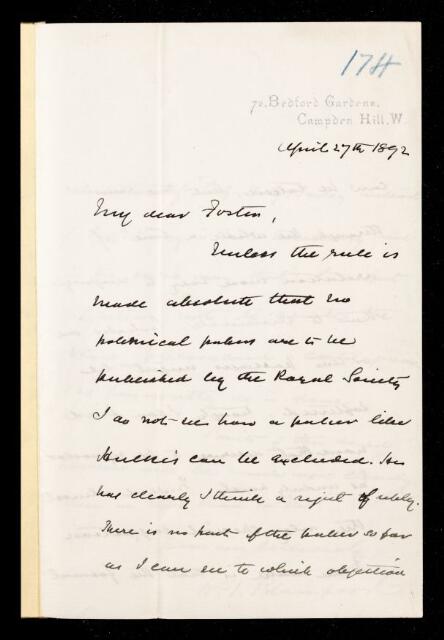 174
72, Bedford Gardens,
Campden Hill, W.
April 27th 1892
My dear Foster,
Unless the rule is
made absolute that no
polemical papers are to be
published by the Royal Society
I do not see how a paper like
can be excluded. He
has clearly I think a right of reply.
There is no part of the paper so far
as I can see to which objection